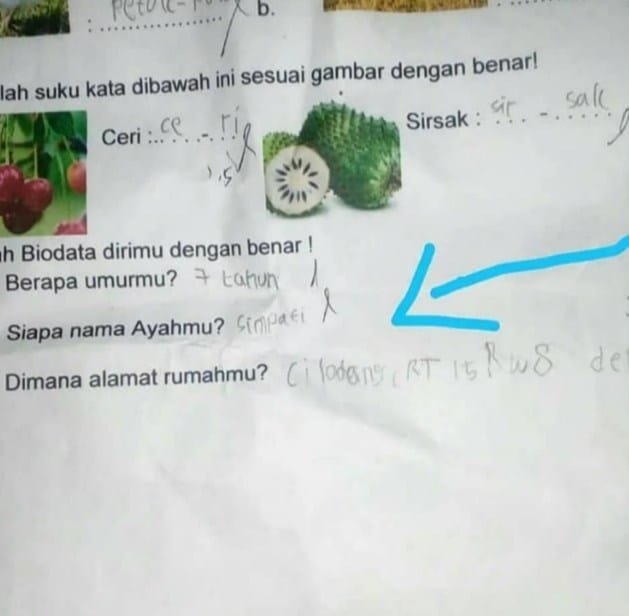 b.
lah suku kata dibawah ini sesuai gambar dengan benar!
Ceri : ce - ri
Sirsak : sir - sak
1,5
h Biodata dirimu dengan benar !
Berapa umurmu? 7 tahun
Siapa nama Ayahmu? Simpati
Dimana alamat rumahmu? Cilodong, RT 15 RW 8 de